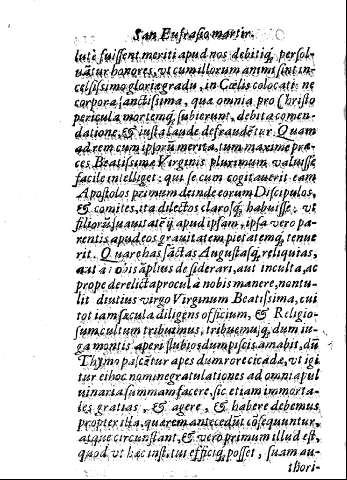 San Eufrasio martir.
lutẽ fuissent meriti apud nos debitiq́; persol-
uãtur honores, vt cum illorum animi sint in-
celsissimo gloriæ gradu, in Cœlis colocati: ne
corpora sanctissima, quæ omnia pro Christo
pericula mortemq́; subierunt, debita comen-
datione, & iusta laude defraudẽtur. Quam
ad rem cum ipsorũ merita, tum maxime pre-
ces Beatissimæ Virginis plurimum valuisse
facile intelliget: qui se cum cogitauerit eam
Apostolos primum deinde eorum Discipulos,
& comites, ita dilectos claros q́; habuisse: vt
filiorũ suauitatẽ ij apud ipsam, ipsa vero pa-
rentis apud eos grauitatem pietatemq́; tenue
rit. Quare has sãctas Augustasq́; reliquias,
aut à nobis ãplius desiderari, aut inculta, ac
prope derelicta procul à nobis manere, nontu-
lit diutius virgo Virginum Beatissima, cui
tot iam sæcula diligens officium, & Religio-
sum cultum tribuimus, tribuemusq́; dum iu-
ga montis aper; flubios dum piscis amabit, dũ
Thymo pascẽtur apes dum rore cicadæ, vt igi
tur ei hoc nomine gratulationes ad omnia pul
uinaria summam facere, sic etiam immorta-
les gratias, & agere, & habere debemus
propter illa, quæ rem antecedũt cõsequuntur,
atque circunstant, & vero primum illud est,
quod vt hæc inst, tui effici q́; posset, suam au-
thori-